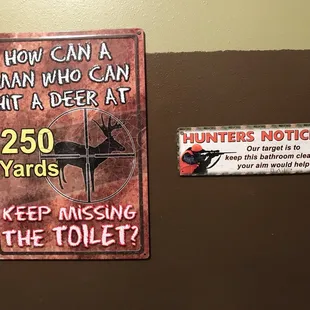 HOW CAN A
MAN WHO CAN
HIT A DEER AT
250
Yards
KEEP MISSING
THE TOILET?
HUNTERS NOTIC
Our target is to
keep this bathroom clea
your aim would help